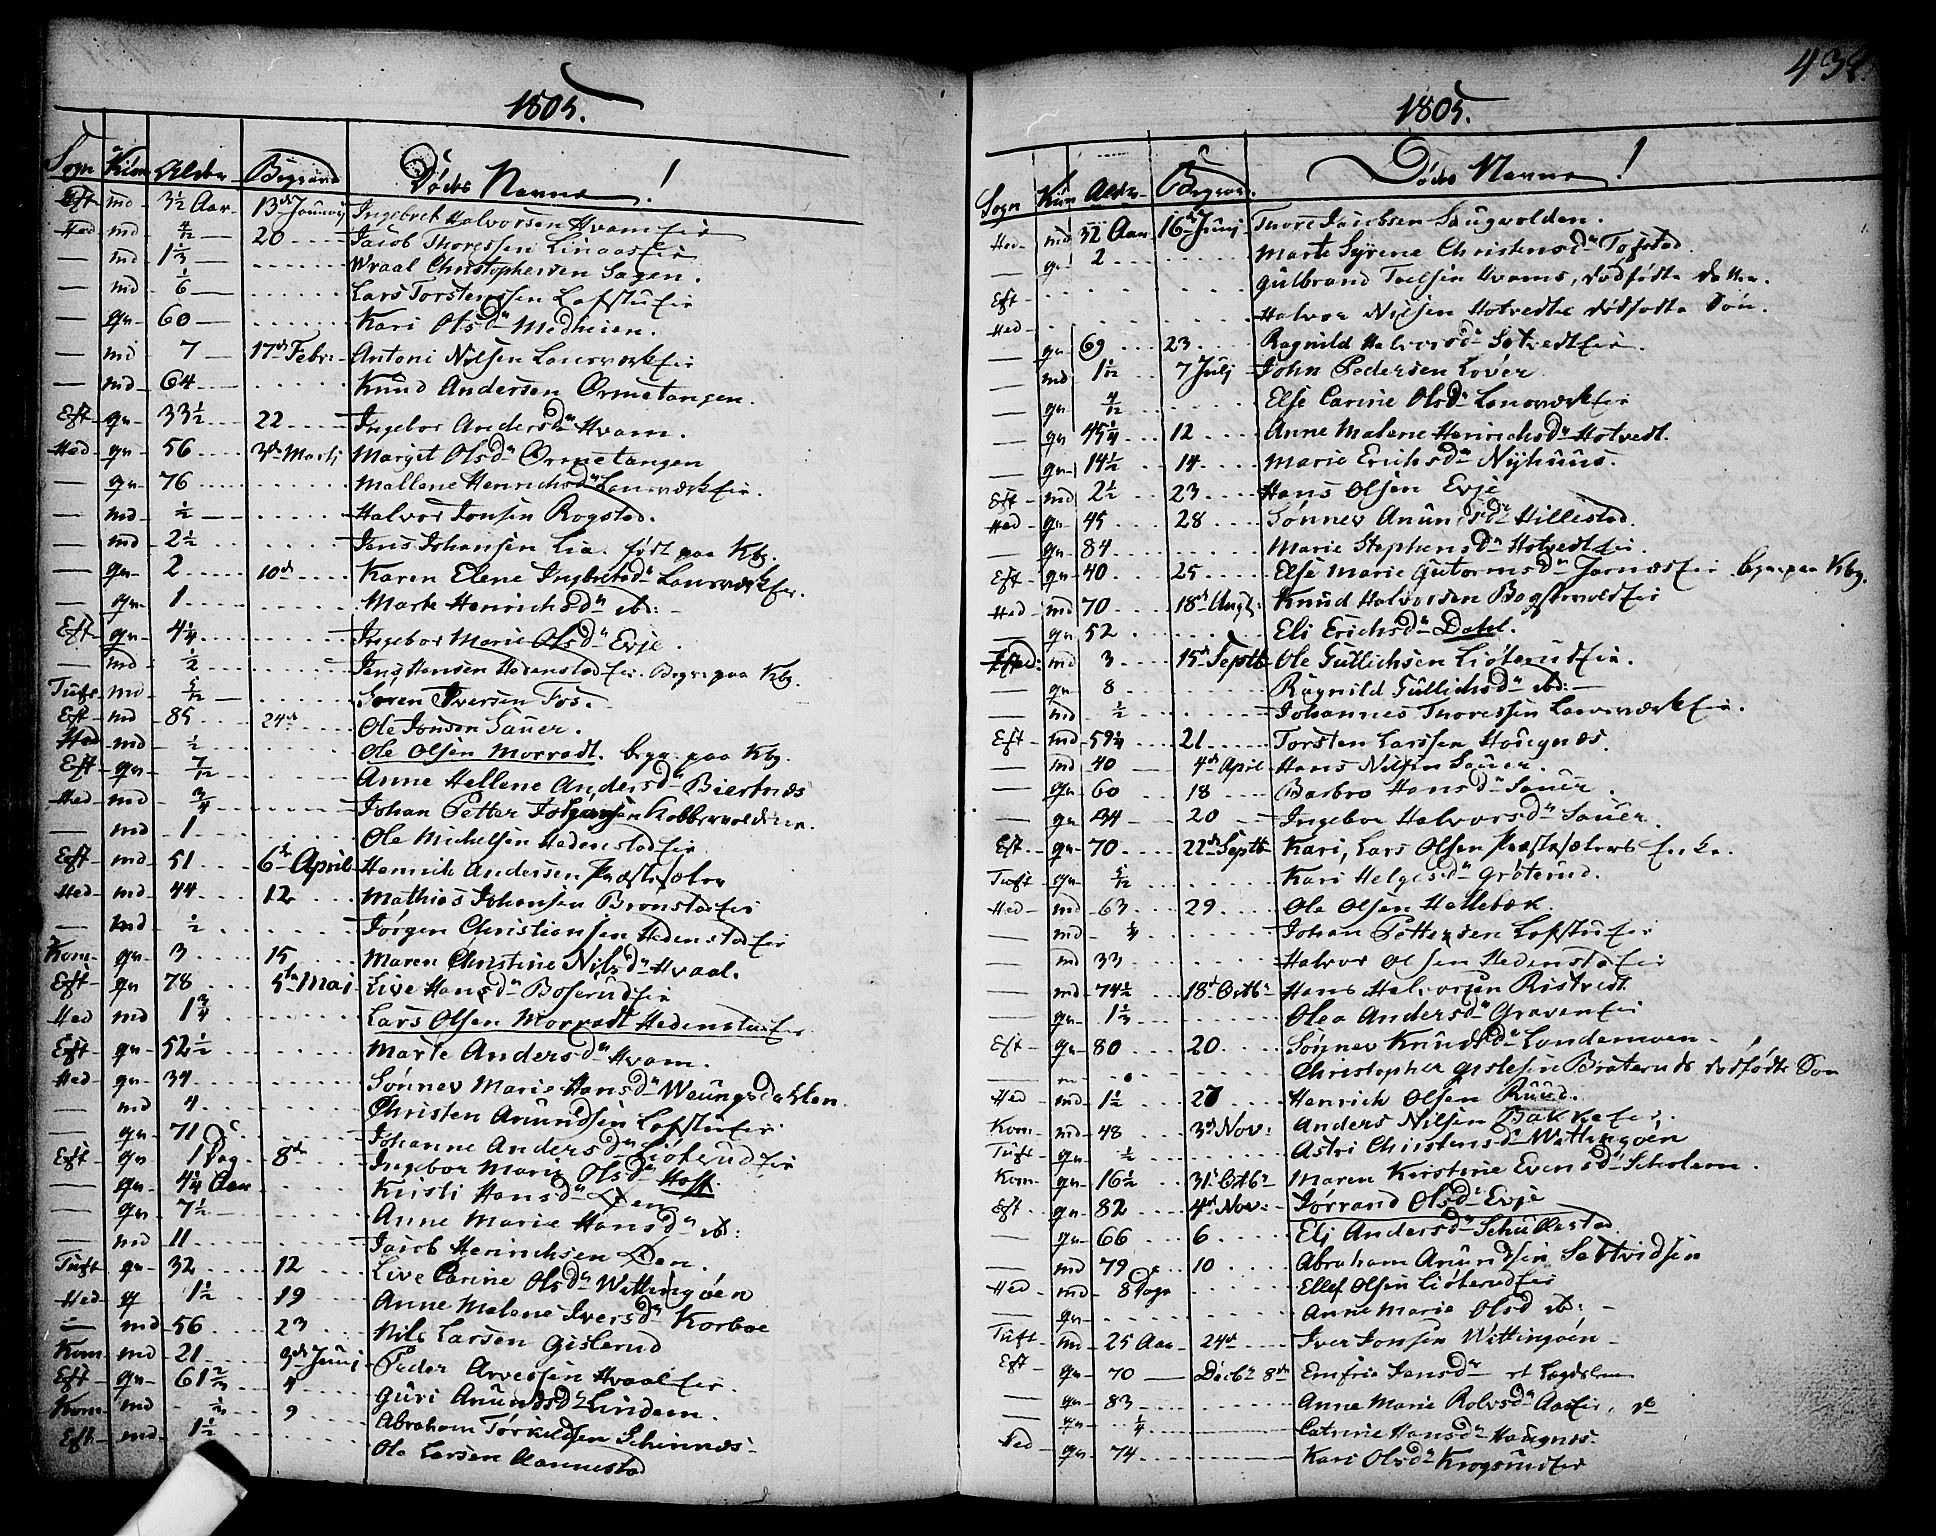 1805.
Sogn Kiøn Alder Begrav Døde Navne!
Eft md 3½ Aar 13de Januarj Ingebret Halvorsen Hvam
Hed md 4/12 20 Jacob Thoressen Linaas
— md 1⅓ Wraal Christophersen Sagen.
— md 1/6 Lars Torstenssen Lofstu
— qn 60 Kari Olsd. Medheien.
— md 7 17de Febr: Antoni Nilsen
— md 64 Knud Andersen Ormetangen.
Eft qn 33½ 22 Ingebor Andersd. Hvam.
Hed qn 56 3de Martj Margit Olsd. Ormetangen
— qn 76 Mallene Henrichsd.
— md ½ Halvor Jonsen Rogstad.
— md 2½ Jens Johansen Lia. ført paa Kbg.
— qn 2 10de Karen Elene Ingebretsd.
— qn 1 Marte Henrichsd. ib:
Eft qn 4¼ Ingebor Marie Olsd. Evje.
— md ½ Jens Hansen Hedenstad Begr. paa Kbg.
Tuft md 5/12 Søren Iversen Fos.
Eft md 85 24de Ole Jonsen Sauer.
Hed md ½ Ole Olsen Morradt. begr. paa Kbg.
Eft qn 7/12 Anne Hellene Andersd. Biertnæs
Hed md ¾ Johan Petter Kobbervolden
— md 1 Ole Michelsen Hedenstad
Eft md 51 6te April Henrich Andersen Præstesætre
Hed md 44 12 Mathias Johansen Bronsta
— md ½ Jørgen Christiansen Hedenstad
Kom qn 3 15 Maren Christine Nilsd. Hvaal.
Eft qn 78 5te Maj Live Hansd. Boserud
Hed md 1¾ Lars Olsen Morradt Hedensta
Eft qn 52½ Marte Andersd. Hvam.
Hed qn 34 Sønnev Marie Hansd. Weungsdahlen
— md 4 Christen Anundsen Lofstu
— qn 71 Johanne Andersd. Liøterud
Eft qn 1 Dag 8de Ingebor Marie Olsd. Hoff.
— qn 4¼ Aar Kristi Hansd. Øen
— qn 7½ Anne Marie Hansd. ib:
— md 11 Jacob Henrichsen Øen.
Tuft qn 32 12 Live Carine Olsd. Wittingøen
Hed q 1½ 19 Anne Malene Iversd. Korboe
— md 56 23 Nils Larsen Gislerud
Kom md 21 3de Junj Peder Arvessen Hvaal
Eft qn 61⅔ 4 Guri Anundsd. Linden.
Kom md ½ 9 Abraham Tørkildsen Skinnæs
Eft md 1½ Ole Larsen Aannestad
1805.
Sogn Kiøn Alder Begrav. Døde Navne!
Hed md 32 Aar 16de Junj Thore Jacobsen Saugvolden.
— qn 2 Marte Syrene Christensd. Tofstad.
Eft Gulbrand Toelsen Hvams, dødfødte datter.
Hed Halvor Nilsen Hotvedts dødfødte Søn.
— qn 69 23 Ragnild Halvorsd. Sætvedt
— md 1 1/12 7 Julj John Pedersen Løver
— qn 4/12 Else Carine Olsd.
— qn 45¼ 12 Anne Malene Henrichsd. Hotvedt.
— qn 14½ 14 Marie Erichsd. Nyhuus.
Eft md 2½ 23 Hans Olsen Evje
Hed qn 45 28 Sønnev Anundsd. Hillestad.
— qn 84 Marie Stephensd. Hotvedt
Eft qn 40 25 Else Marie Gutormsd. begr. paa Kbg.
Hed md 70 18de Augt: Knud Halvorsen
— qn 52 Eli Erichsd. Dahl.
Hed: md 3 15de Septb Ole Gullichsen Liøterud
— qn 8 Ragnild Gullichsd. ib:
— md ½ Johannes Thoressen
Eft md 59¼ 21 Torsten Larssen Hougnæs
— md 40 4de April Hans Nilsen Sauer.
— qn 60 18 Barbro Hansd. Sauer.
— qn 34 20 Ingebor Halvorsd. Sauer.
Eft qn 70 22de Septb Kari, Lars Olsen Præstesæters Enke.
Tuft qn 5/12 Kari Helgesd. Grøterud.
Hed md 63 29 Ole Olsen Hallebæk.
— md ¼ Johan Pettersen Lofstu
— md 33 Halvor Olsen Hedensta
— md 74½ 18de Octb Hans Halvorsen Ristvedt
— qn 1⅓ Olea Andersd. Graven
Eft qn 80 20 Sønnev Knudsd. Landemoen.
— Christopher Gislesen Braterud dødfødte Søn
Hed md 1½ 27 Henrich Olsen Ruud.
Kom md 48 3de Nov: Anders Nilsen Bakke
Tuft qn ½ Astri Christensd. Wittingøen
Kom qn 16½ 31de Octb Maren Kirstine Evensd. Scholem.
Eft qn 82 4de Nov: Jørrand Olsd. Evje
— qn 66 6 Elj Andersd. Schullestad
— md 79 10 Abraham Anundsen Sættvidsen
Hed md 8 Dage Ellef Olsen Liøterud
— qn Anne Marie Olsd. ib:
Tuft md 25 Aar 24de Iver Jonsen Wittingøen
Eft qn 70 Decbr 8de Jensd.
— qn 83 Anne Marie Rolvsd. Aas
— qn ¼ Catrine Hansd. Hougnæs.
Hed qn 74 Kari Olsd. Krogsund